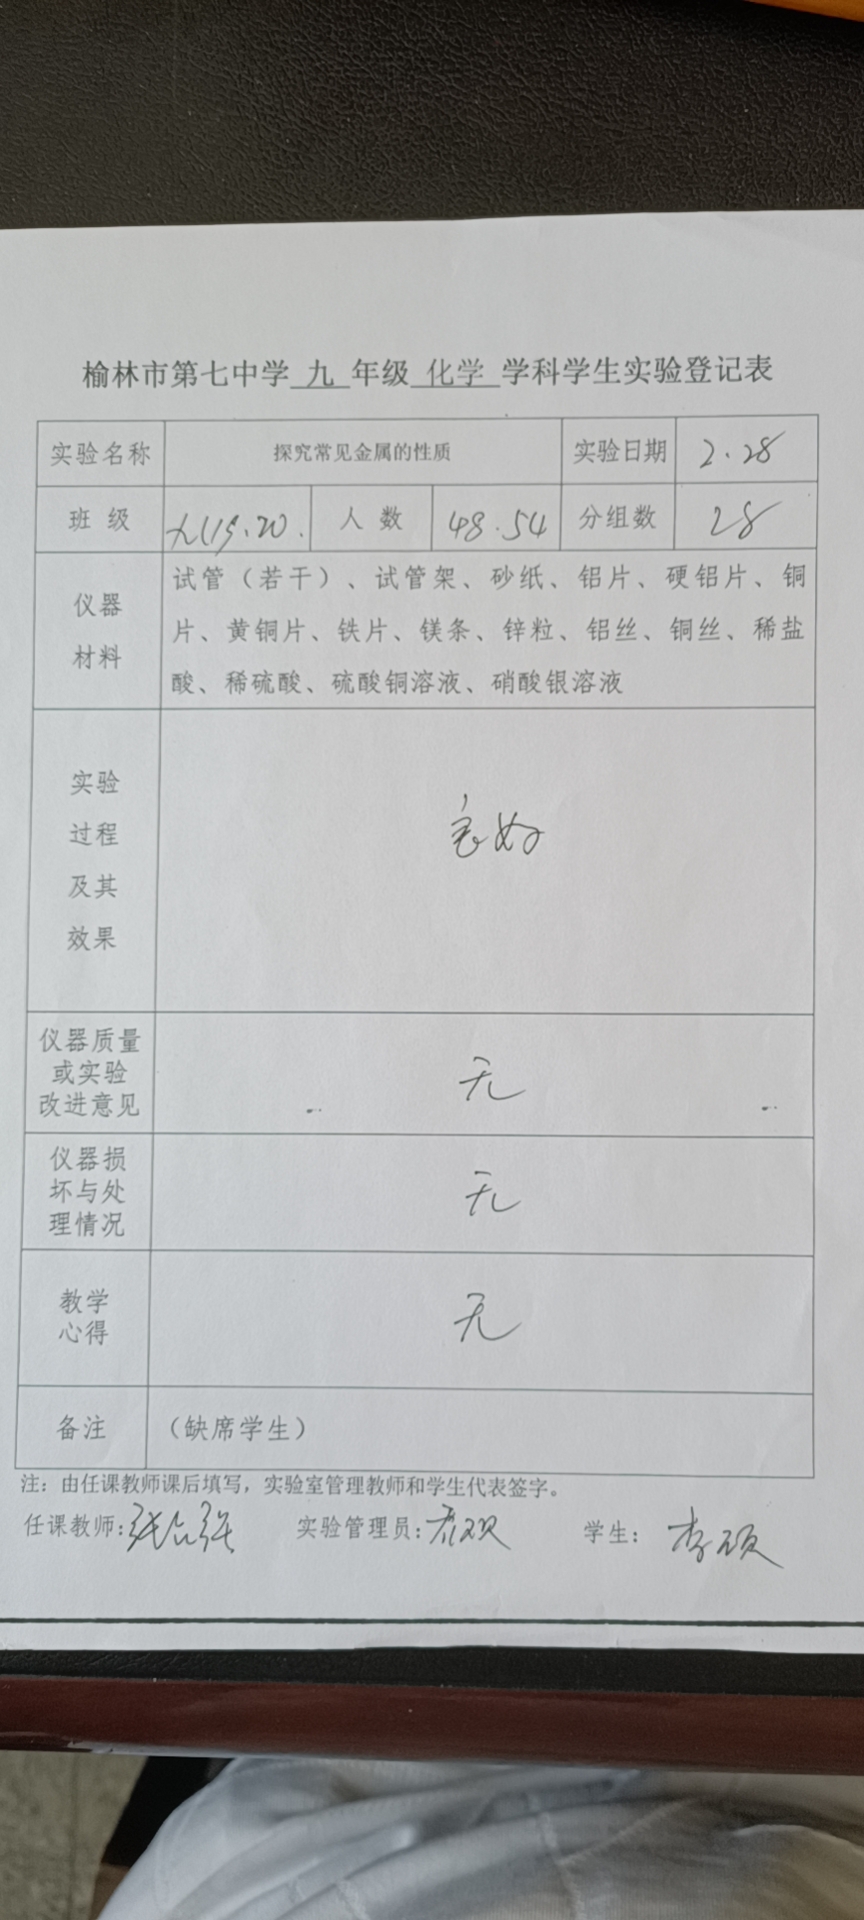 榆林市第七中学 九 年级 化学 学科学生实验登记表
实验名称 探究常见金属的性质 实验日期 2.28
班级 九(19.20. 人数 48.54 分组数 28
仪器
材料
试管（若干）、试管架、砂纸、铝片、硬铝片、铜
片、黄铜片、铁片、镁条、锌粒、铝丝、铜丝、稀盐
酸、稀硫酸、硫酸铜溶液、硝酸银溶液
实验
过程
及其
效果
良好
仪器质量
或实验
改进意见
无
仪器损
坏与处
理情况
无
教学
心得
无
备注 （缺席学生）
注：由任课教师课后填写，实验室管理教师和学生代表签字。
任课教师: 实验管理员: 学生: 李硕